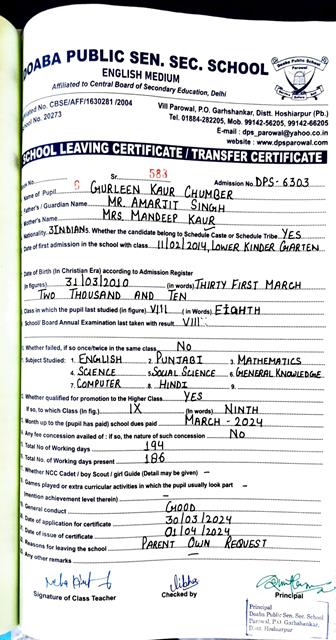 DOABA PUBLIC SEN. SEC. SCHOOL
ENGLISH MEDIUM
Affiliated to Central Board of Secondary Education, Delhi
Doaba Public School
Parowal
No. CBSE/AFF/1630281 /2004
No. 20273
Vill Parowal, P.O. Garhshankar, Distt. Hoshiarpur (Pb.)
Tel. 01884-282205, Mob. 99142-56205, 99142-66205
E-mail : dps_parowal@yahoo.co.in
website : www.dpsparowal.com
SCHOOL LEAVING CERTIFICATE / TRANSFER CERTIFICATE
No. Sr. 583 Admission No. DPS-6303
Name of Pupil GURLEEN KAUR CHUMBER
Father's / Guardian Name MR. AMARJIT SINGH
Mother's Name MRS. MANDEEP KAUR
Nationality INDIAN 5. Whether the candidate belong to Schedule Caste or Schedule Tribe. YES
Date of first admission in the school with class 11/02/2014, LOWER KINDER GARTEN
Date of Birth (In Christian Era) according to Admission Register
(in figures) 31/03/2010 (in words) THIRTY FIRST MARCH
TWO THOUSAND AND TEN
Class in which the pupil last studied (in figure) VIII (in Words) EIGHTH
School/ Board Annual Examination last taken with result VIII
Whether failed, if so once/twice in the same class No
Subject Studied: 1. ENGLISH 2. PUNJABI 3. MATHEMATICS
4. SCIENCE 5. SOCIAL SCIENCE 6. GENERAL KNOWLEDGE
7. COMPUTER 8. HINDI 9.
Whether qualified for promotion to the Higher Class. YES
If so, to which Class (In fig.) IX (In words) NINTH
Month up to the (pupil has paid) school dues paid MARCH - 2024
Any fee concession availed of : if so, the nature of such concession No
Total No of Working days 194
Total No. of Working days present 186
Whether NCC Cadet / boy Scout / girl Guide (Detail may be given) —
Games played or extra curricular activities in which the pupil usually look part —
(mention achievement level therein) —
General conduct GOOD
Date of application for certificate 30/03/2024
Date of issue of certificate 01/04/2024
Reasons for leaving the school PARENT OWN REQUEST
Any other remarks —
Signature of Class Teacher
Checked by
Principal
Principal
Doaba Public Sen. Sec. School
Parowal, P.O. Garhshankar,
Distt. Hoshiarpur